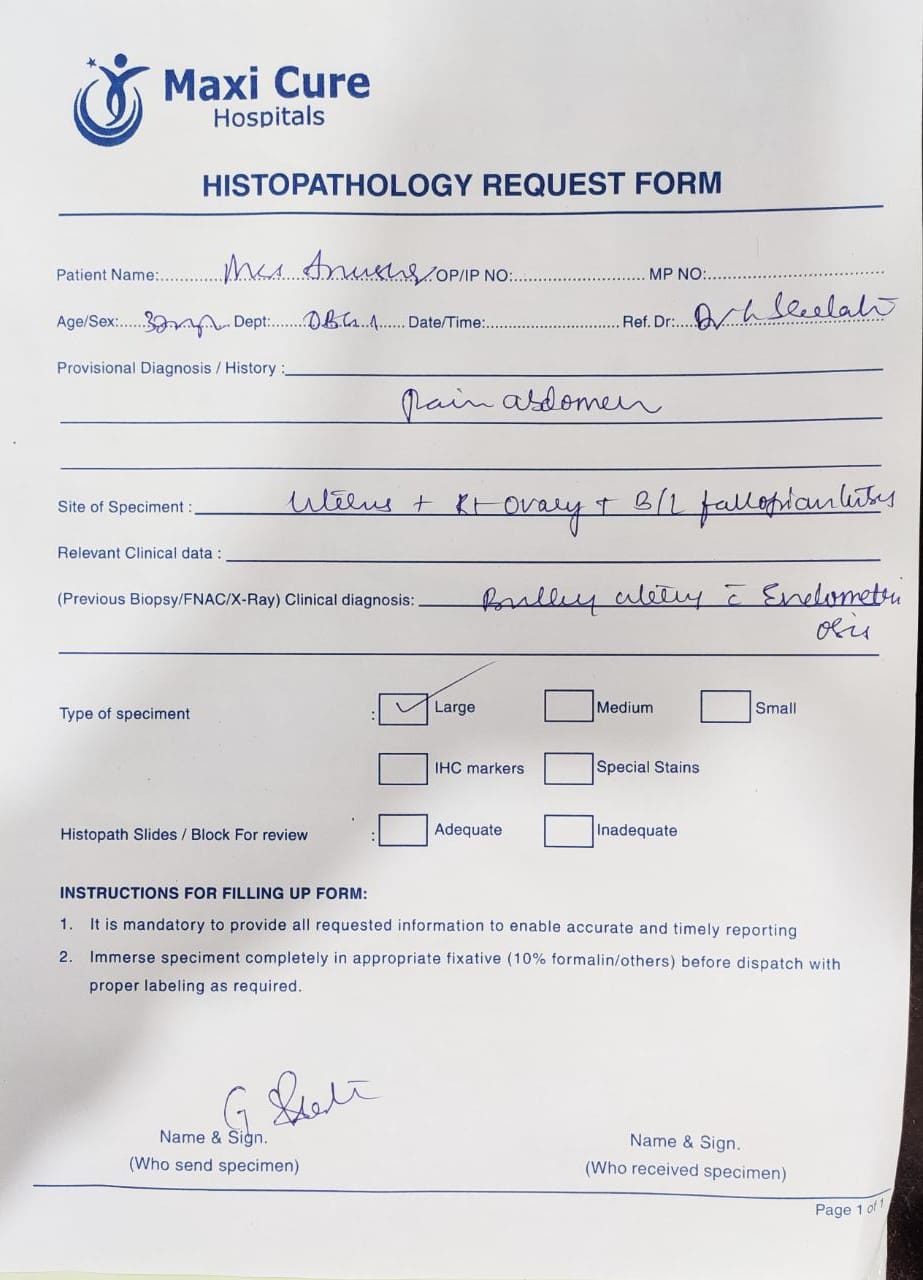 Maxi Cure
Hospitals
HISTOPATHOLOGY REQUEST FORM
Patient Name: Mrs OP/IP NO: MP NO:
Age/Sex: Dept: OBG Date/Time: Ref. Dr: Dr
Provisional Diagnosis / History :
Pain abdomen
Site of Specimen : Uterus + Rt Ovary + B/L fallopian tubes
Relevant Clinical data :
(Previous Biopsy/FNAC/X-Ray) Clinical diagnosis: c̄ Endometri
osis
Type of speciment : Large Medium Small
IHC markers Special Stains
Histopath Slides / Block For review : Adequate Inadequate
INSTRUCTIONS FOR FILLING UP FORM:
1. It is mandatory to provide all requested information to enable accurate and timely reporting
2. Immerse speciment completely in appropriate fixative (10% formalin/others) before dispatch with
proper labeling as required.
G
Name & Sign. Name & Sign.
(Who send specimen) (Who received specimen)
Page 1 of 1